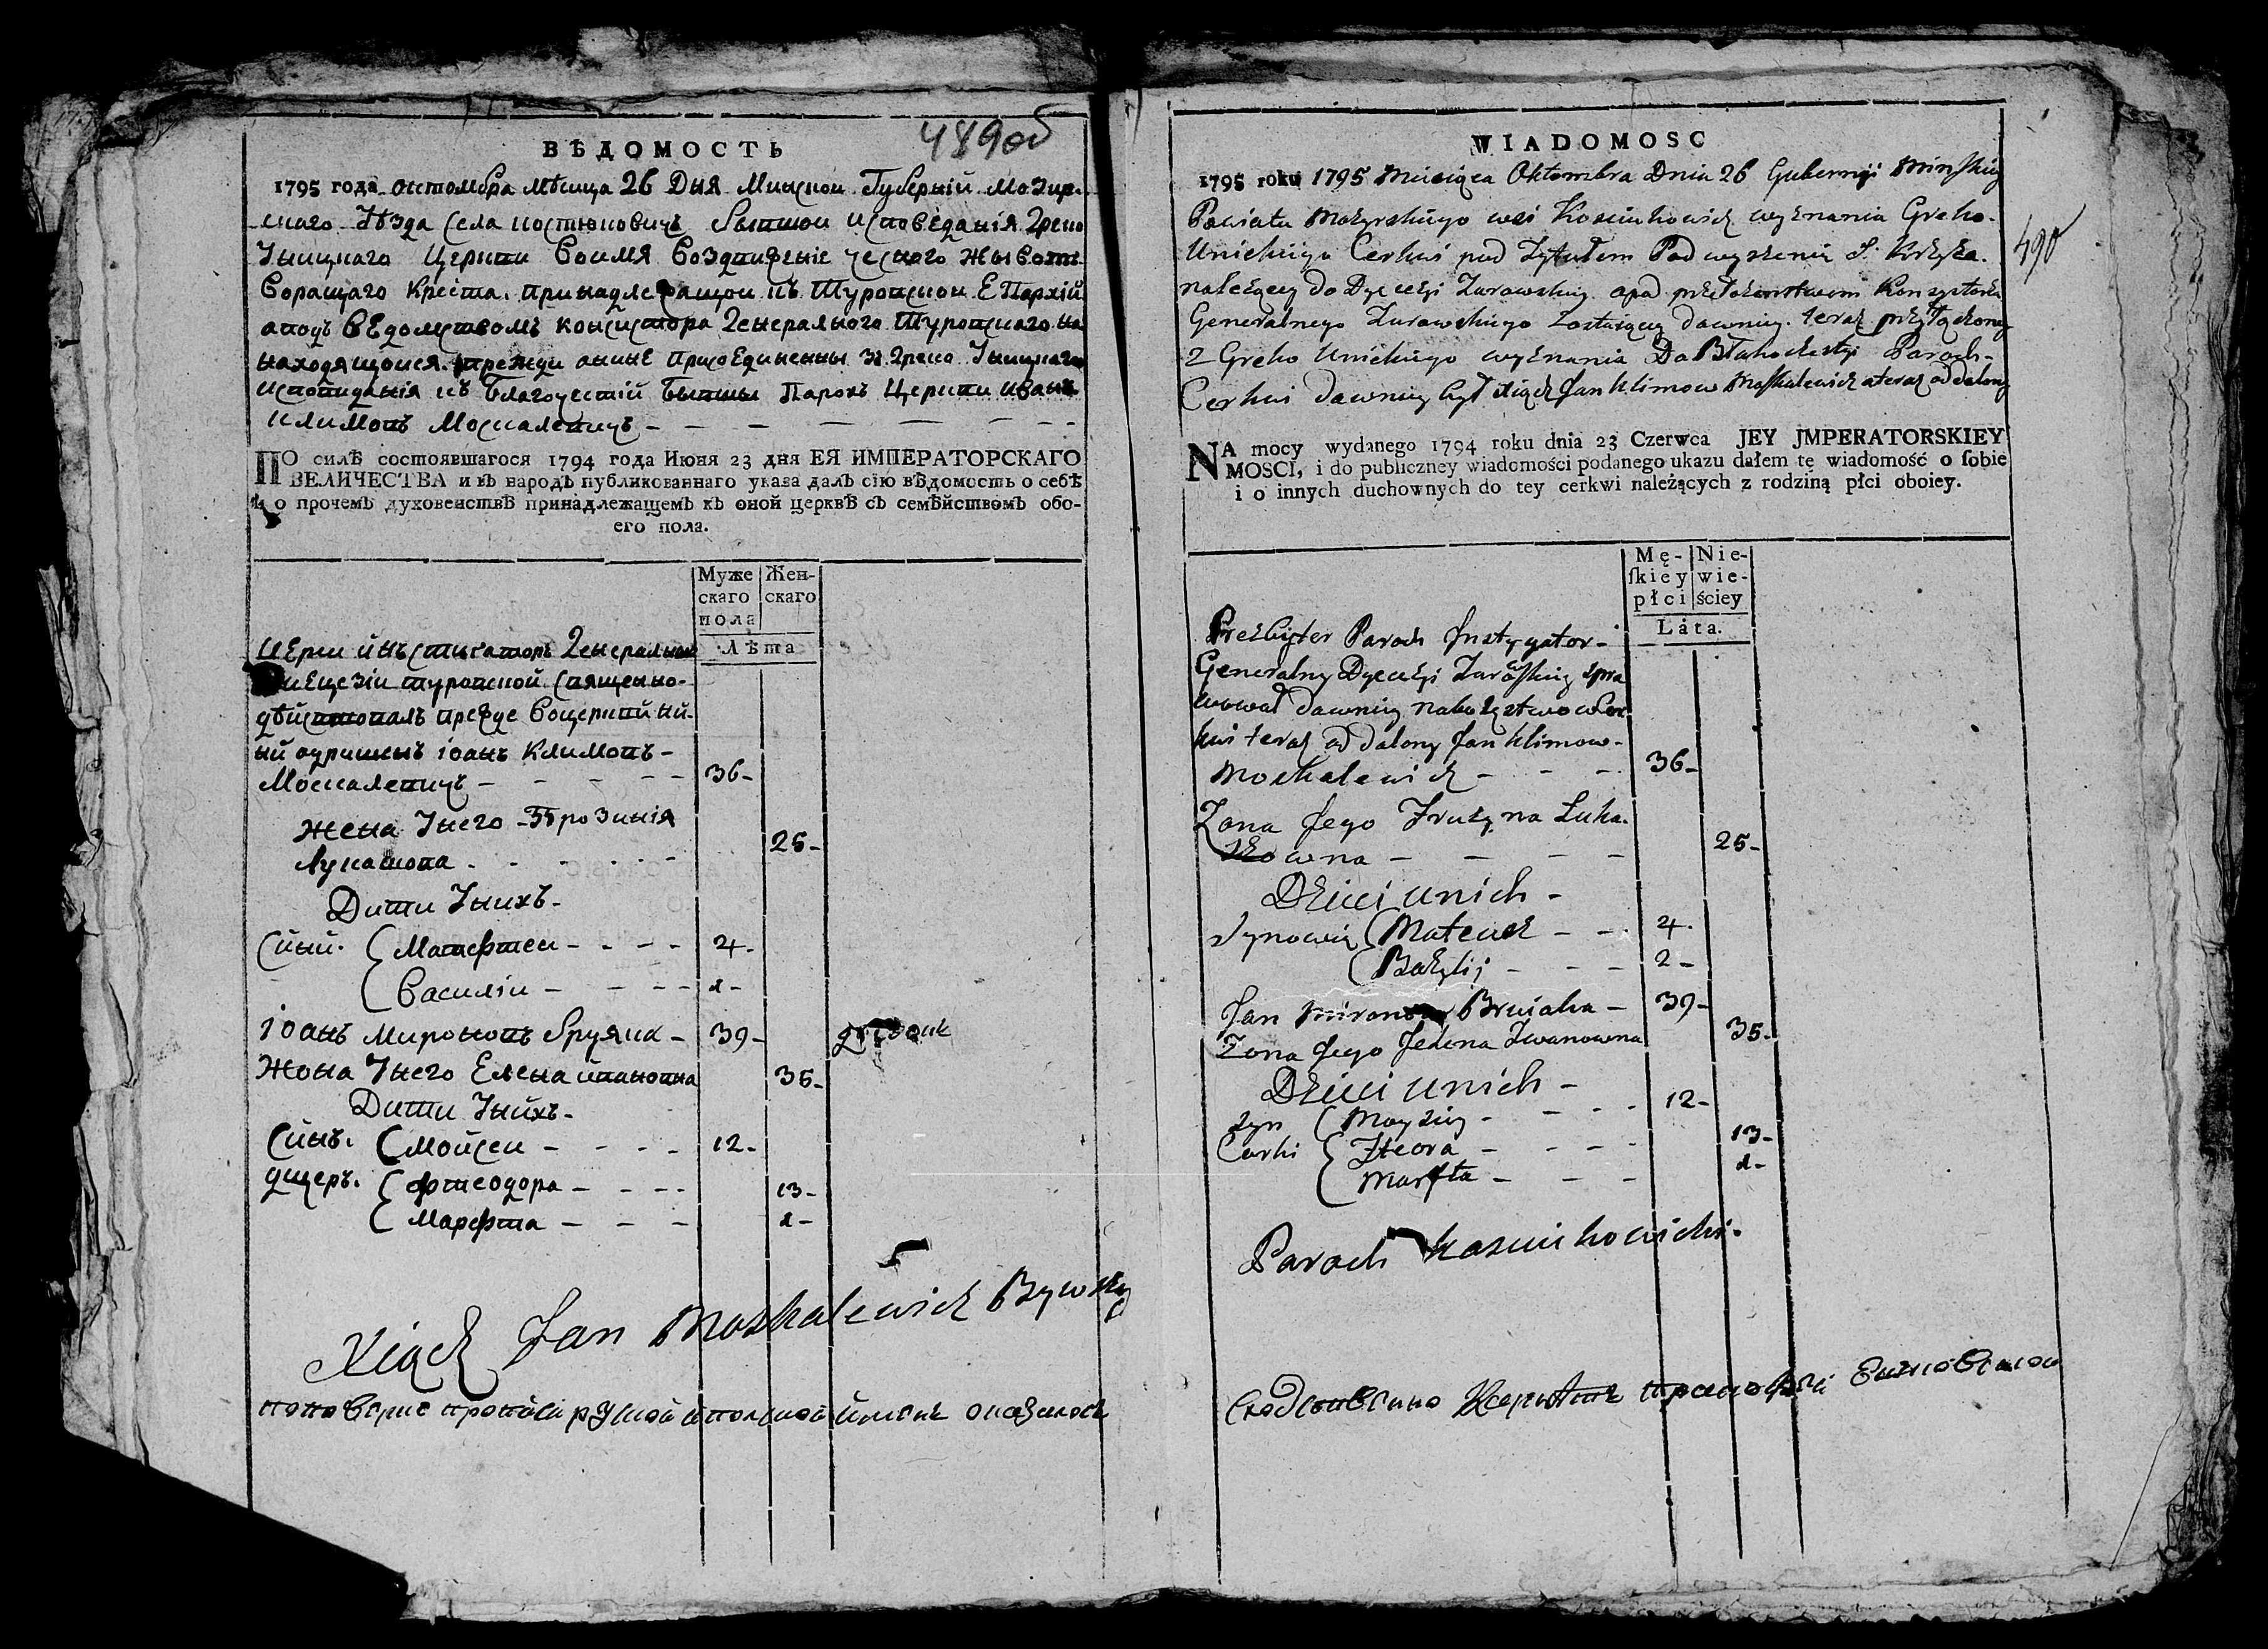 489об
ВѢДОМОСТЬ
1795 года октомбра мѣсица 26 Дня Минской Губерній Мозир-
ского Уѣзда Села Костюковичъ бытшой исповеданія Греко
Уницкаго Церкви Воимя Воздвиженіе чеснаго Животво-
Ворящаго Креста. принадлежащой къ Туровской Епархій
аподъ вѣдомствомъ консистора Генералного Туровскаго на
находящойся. прежди аныне присоединенны зъ Греко Уницкаго
исповиданія къ Благочестій бытшы Парохъ Церкви иванъ
Климовъ Москалевичъ
ПО силѣ состоявшагося 1794 года Июня 23 дня ЕЯ ИМПЕРАТОРСКАГО
ВЕЛИЧЕСТВА и въ народъ публикованнаго указа далъ сію вѣдомость о себѣ
и о прочемъ духовенствѣ принадлежащемъ къ оной церквѣ съ семѣйствомъ обо-
его пола.
Муже
скаго
пола
Жен-
скаго
Лѣта
Иерей инстигаторъ Генеральный
Диецезіи туровской Священно-
дѣйствовалъ прежде Воцерквий
іоанъ Климовъ-
Москалевичъ - - - - 36-
Жена Унего Ефрозинія
Лукашова - - - - 25-
Дити Унихъ-
Сыны. Матфтей - - - - 4-
Василіи - - - - 2-
іоанъ Мироновъ Бруяка - 39-
Жона Унего Елена ивановна 35-
Дити Унихъ-
Сынъ. Мойсей - - - - 12-
дщерь. Фтеодора - - - - 13-
Марфта - - - 2-
Xiądz Jan Moskalewicz Bywszy
WIADOMOSC
490
1795 roku 1795 Miesiąca Oktombra Dnia 26 Gubernyi Minskiey
Powiatu Mozyrskiego wsi Kosciukowicz wyznania Greko-
Unickiego Cerkwi pod Tytułem Podwyszenia S. Krzyża.
należącey do Dyecezyi Turowskiey apod przełożenstwem Konsystorza
Generalnego Turowskiego Zostaiącey dawniey. teraz przyłączony
z Greko Unickiego wyznania Do Błahoczestyi Paroch-
Cerkwi dawniey był Xiądz Jan Klimow Moskalewicz ateraz oddalony
NA mocy wydanego 1794 roku dnia 23 Czerwca JEY JMPERATORSKIEY
MOSCI, i do publiczney wiadomości podanego ukazu dałem tę wiadomość o sobie
i o innych duchownych do tey cerkwi należących z rodziną płci oboiey.
Mę-
skiey
płci
Nie-
wie-
ściey
Láta.
Prezbyter Paroch Instygator-
Generalny Dyecezyi Turowskiey spra
wował dawniey nabożęstwo w Cer
kwi teraz oddalony Jan Klimow-
Moskalewicz - - - 36-
Zona Jego Fruzyna Łuka-
szowna - - - - 25-
Dzieci unich-
Synowie Mateusz - - 4-
Bazylij - - - 2-
Jan Mironow Bruiaka - 39-
Zona Jego Jelena Iwanowna 35-
Dzieci unich-
syn Moyziey - - - - 12-
Corki Fteora - - - - 13-
Marfta - - - 2-
Paroch Kosciukowicki.